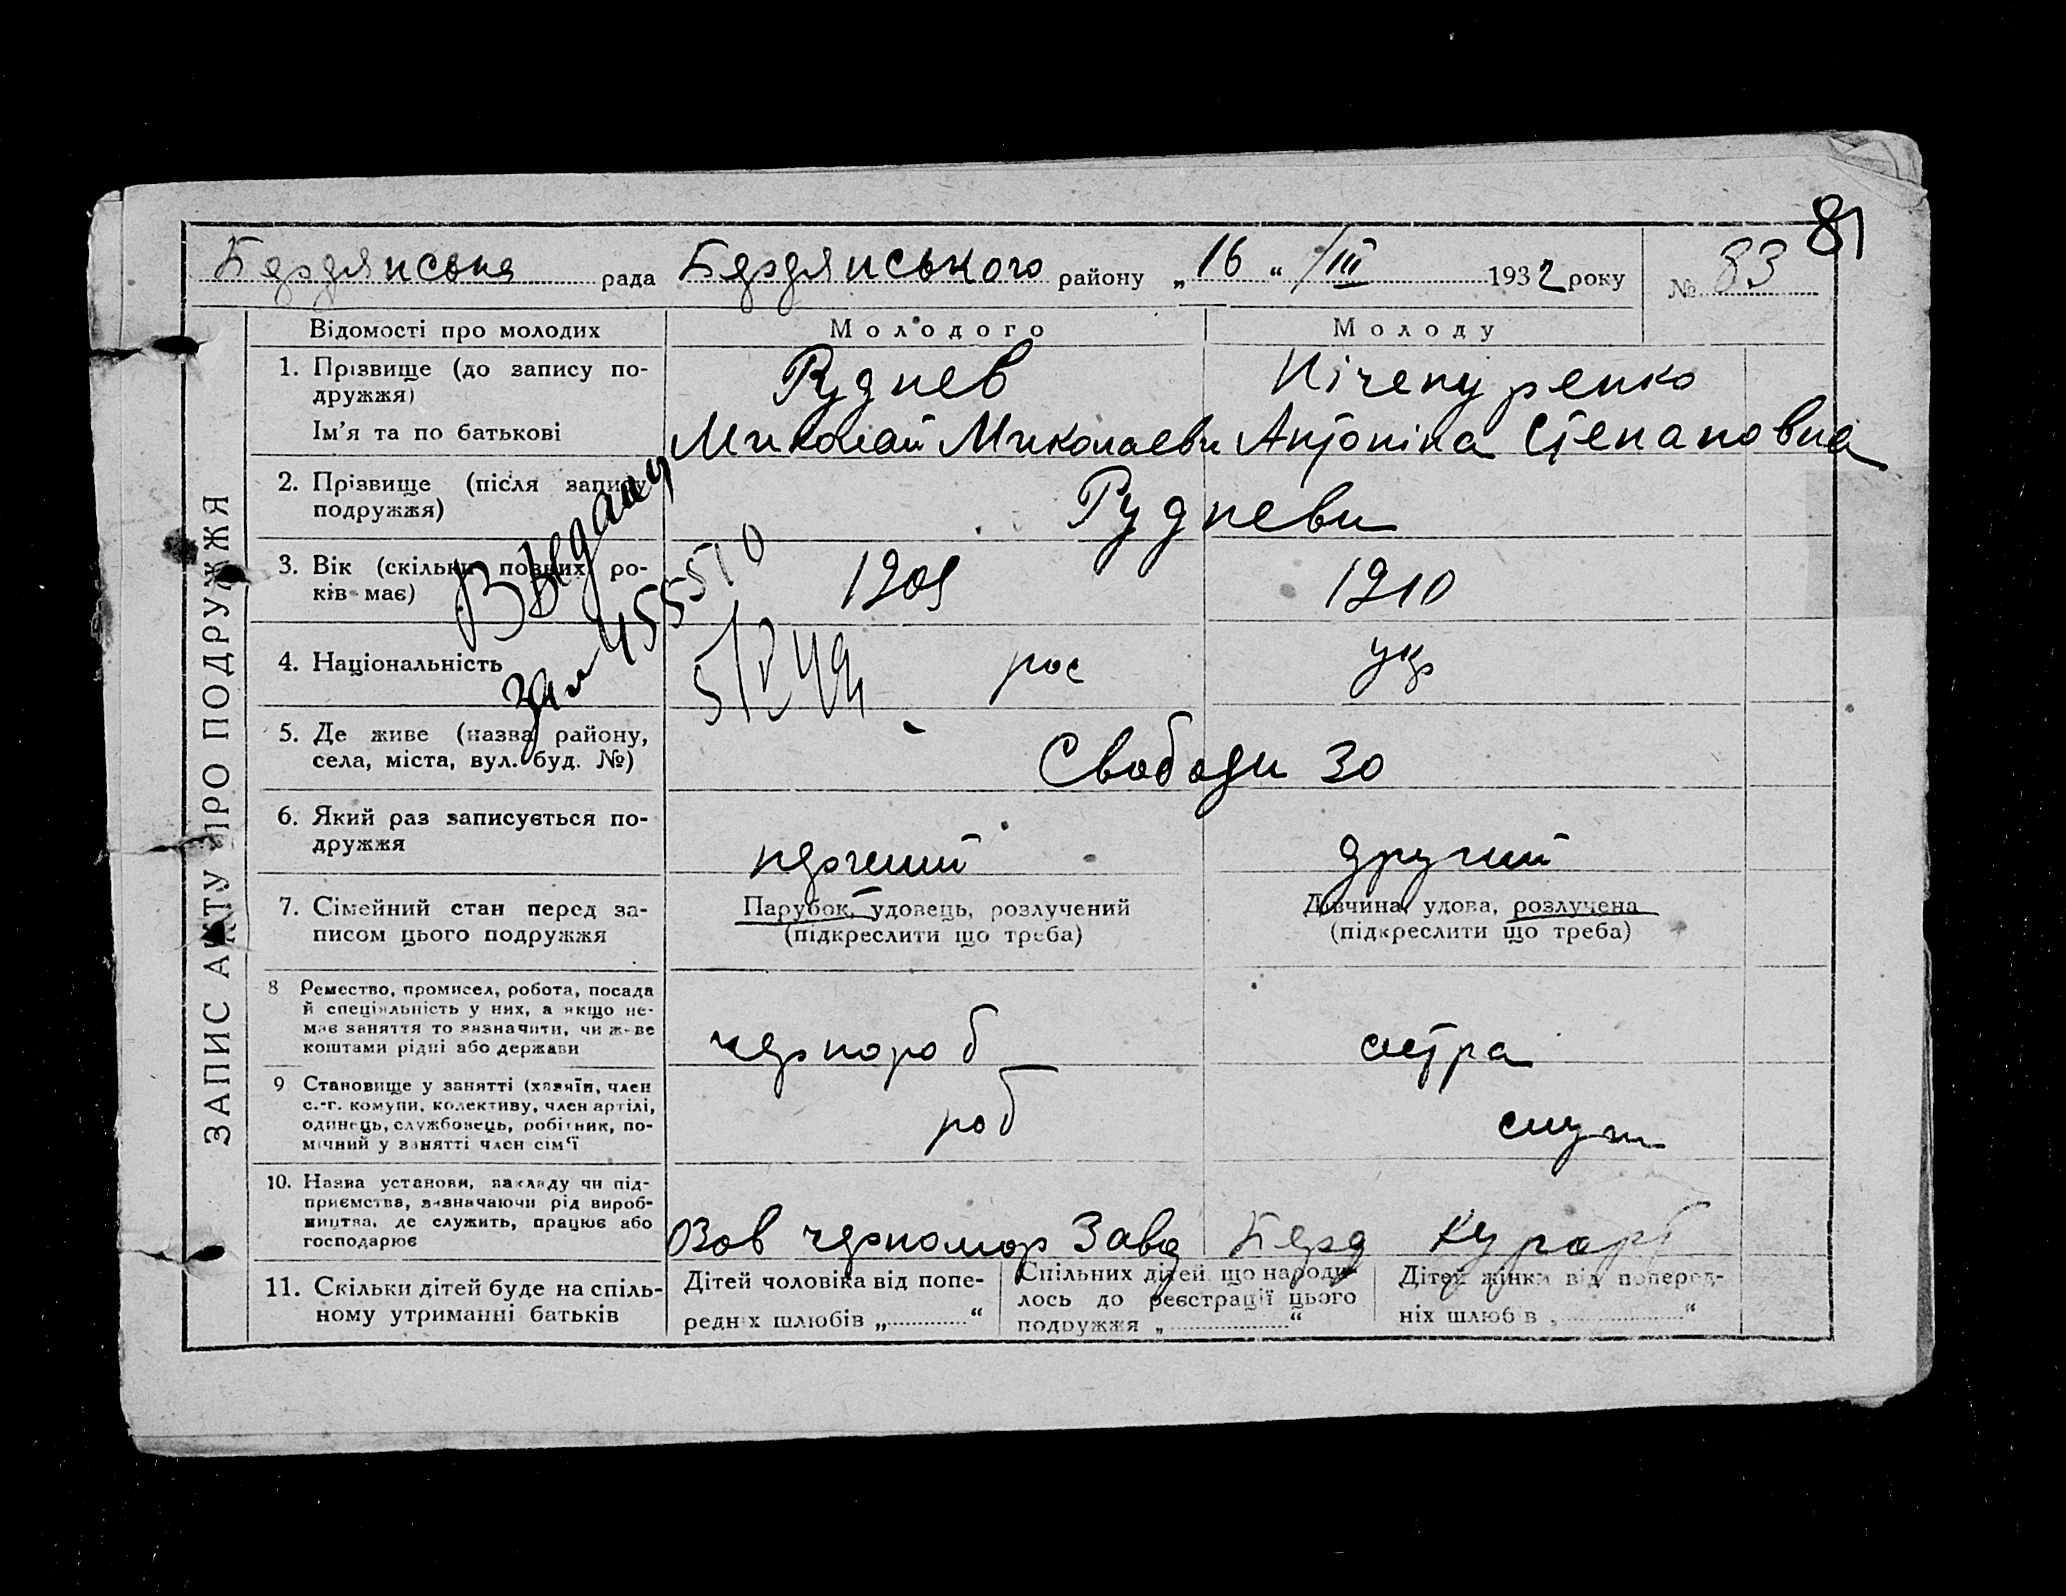 81
Бердянська рада Бердянського району „16“ /III 1932 року № 83
ЗАПИС АКТУ ПРО ПОДРУЖЖЯ
Відомості про молодих
Молодого
Молоду
1. Прізвище (до запису по-
дружжя)
Руднев
Піченуренко
Ім'я та по батькові
Миколай Миколаеви
Антоніна Степановна
2. Прізвище (після запису
подружжя)
Рудневи
3. Вік (скільки повних ро-
ків має)
1210
4. Національність
рос
укр
5. Де живе (назва району,
села, міста, вул. буд. №)
Свободи 30
6. Який раз записується по-
дружжя
перший
другий
7. Сімейний стан перед за-
писом цього подружжя
Парубок, удовець, розлучений
(підкреслити що треба)
Дівчина, удова, розлучена
(підкреслити що треба)
8 Ремество, промисел, робота, посада
й спеціяльність у них, а якщо не-
має заняття то зазначити, чи живе
коштами рідні або держави
чернороб
сестра
9 Становище у занятті (хазяїн, член
с.-г. комуни, колективу, член артілі,
одинець, службовець, робітник, по-
мічний у занятті член сім'ї
роб
служ
10. Назва установи, закладу чи під-
приємства, зазначаючи рід вироб-
ництва, де служить, працює або
господарює
Зов черномор Завд
Берд Курорт
11. Скільки дітей буде на спіль-
ному утриманні батьків
Дітей чоловіка від попе-
редніх шлюбів „ “
Спільних дітей що народи-
лось до реєстрації цього
подружжя „ “
Дітей жінки від поперед-
ніх шлюбів „ “
455510
5/V 49